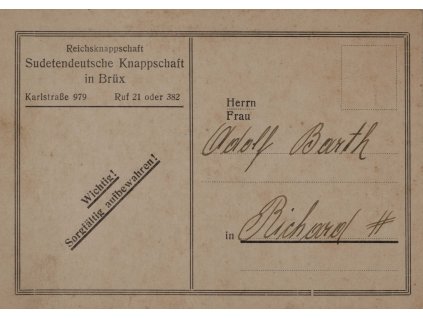 Reichsknappschaft
Sudetendeutsche Knappschaft
in Brüx
Karlstraße 979 Ruf 21 oder 382
Wichtig!
Sorgfältig aufbewahren!
Herrn
Frau
Adolf Barth
in Richard II